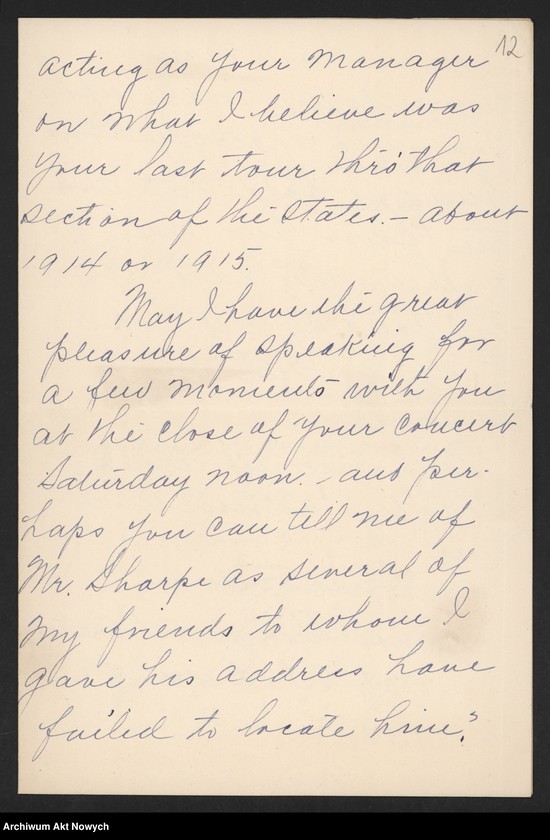 12
acting as your manager
on what I believe was
your last tour thro' that
section of the States. – about
1914 or 1915.
May I have the great
pleasure of speaking for
a few moments with you
at the close of your concert
Saturday noon. – and per-
haps you can tell me of
Mr. Sharpe as several of
my friends to whom I
gave his address have
failed to locate him."
Archiwum Akt Nowych